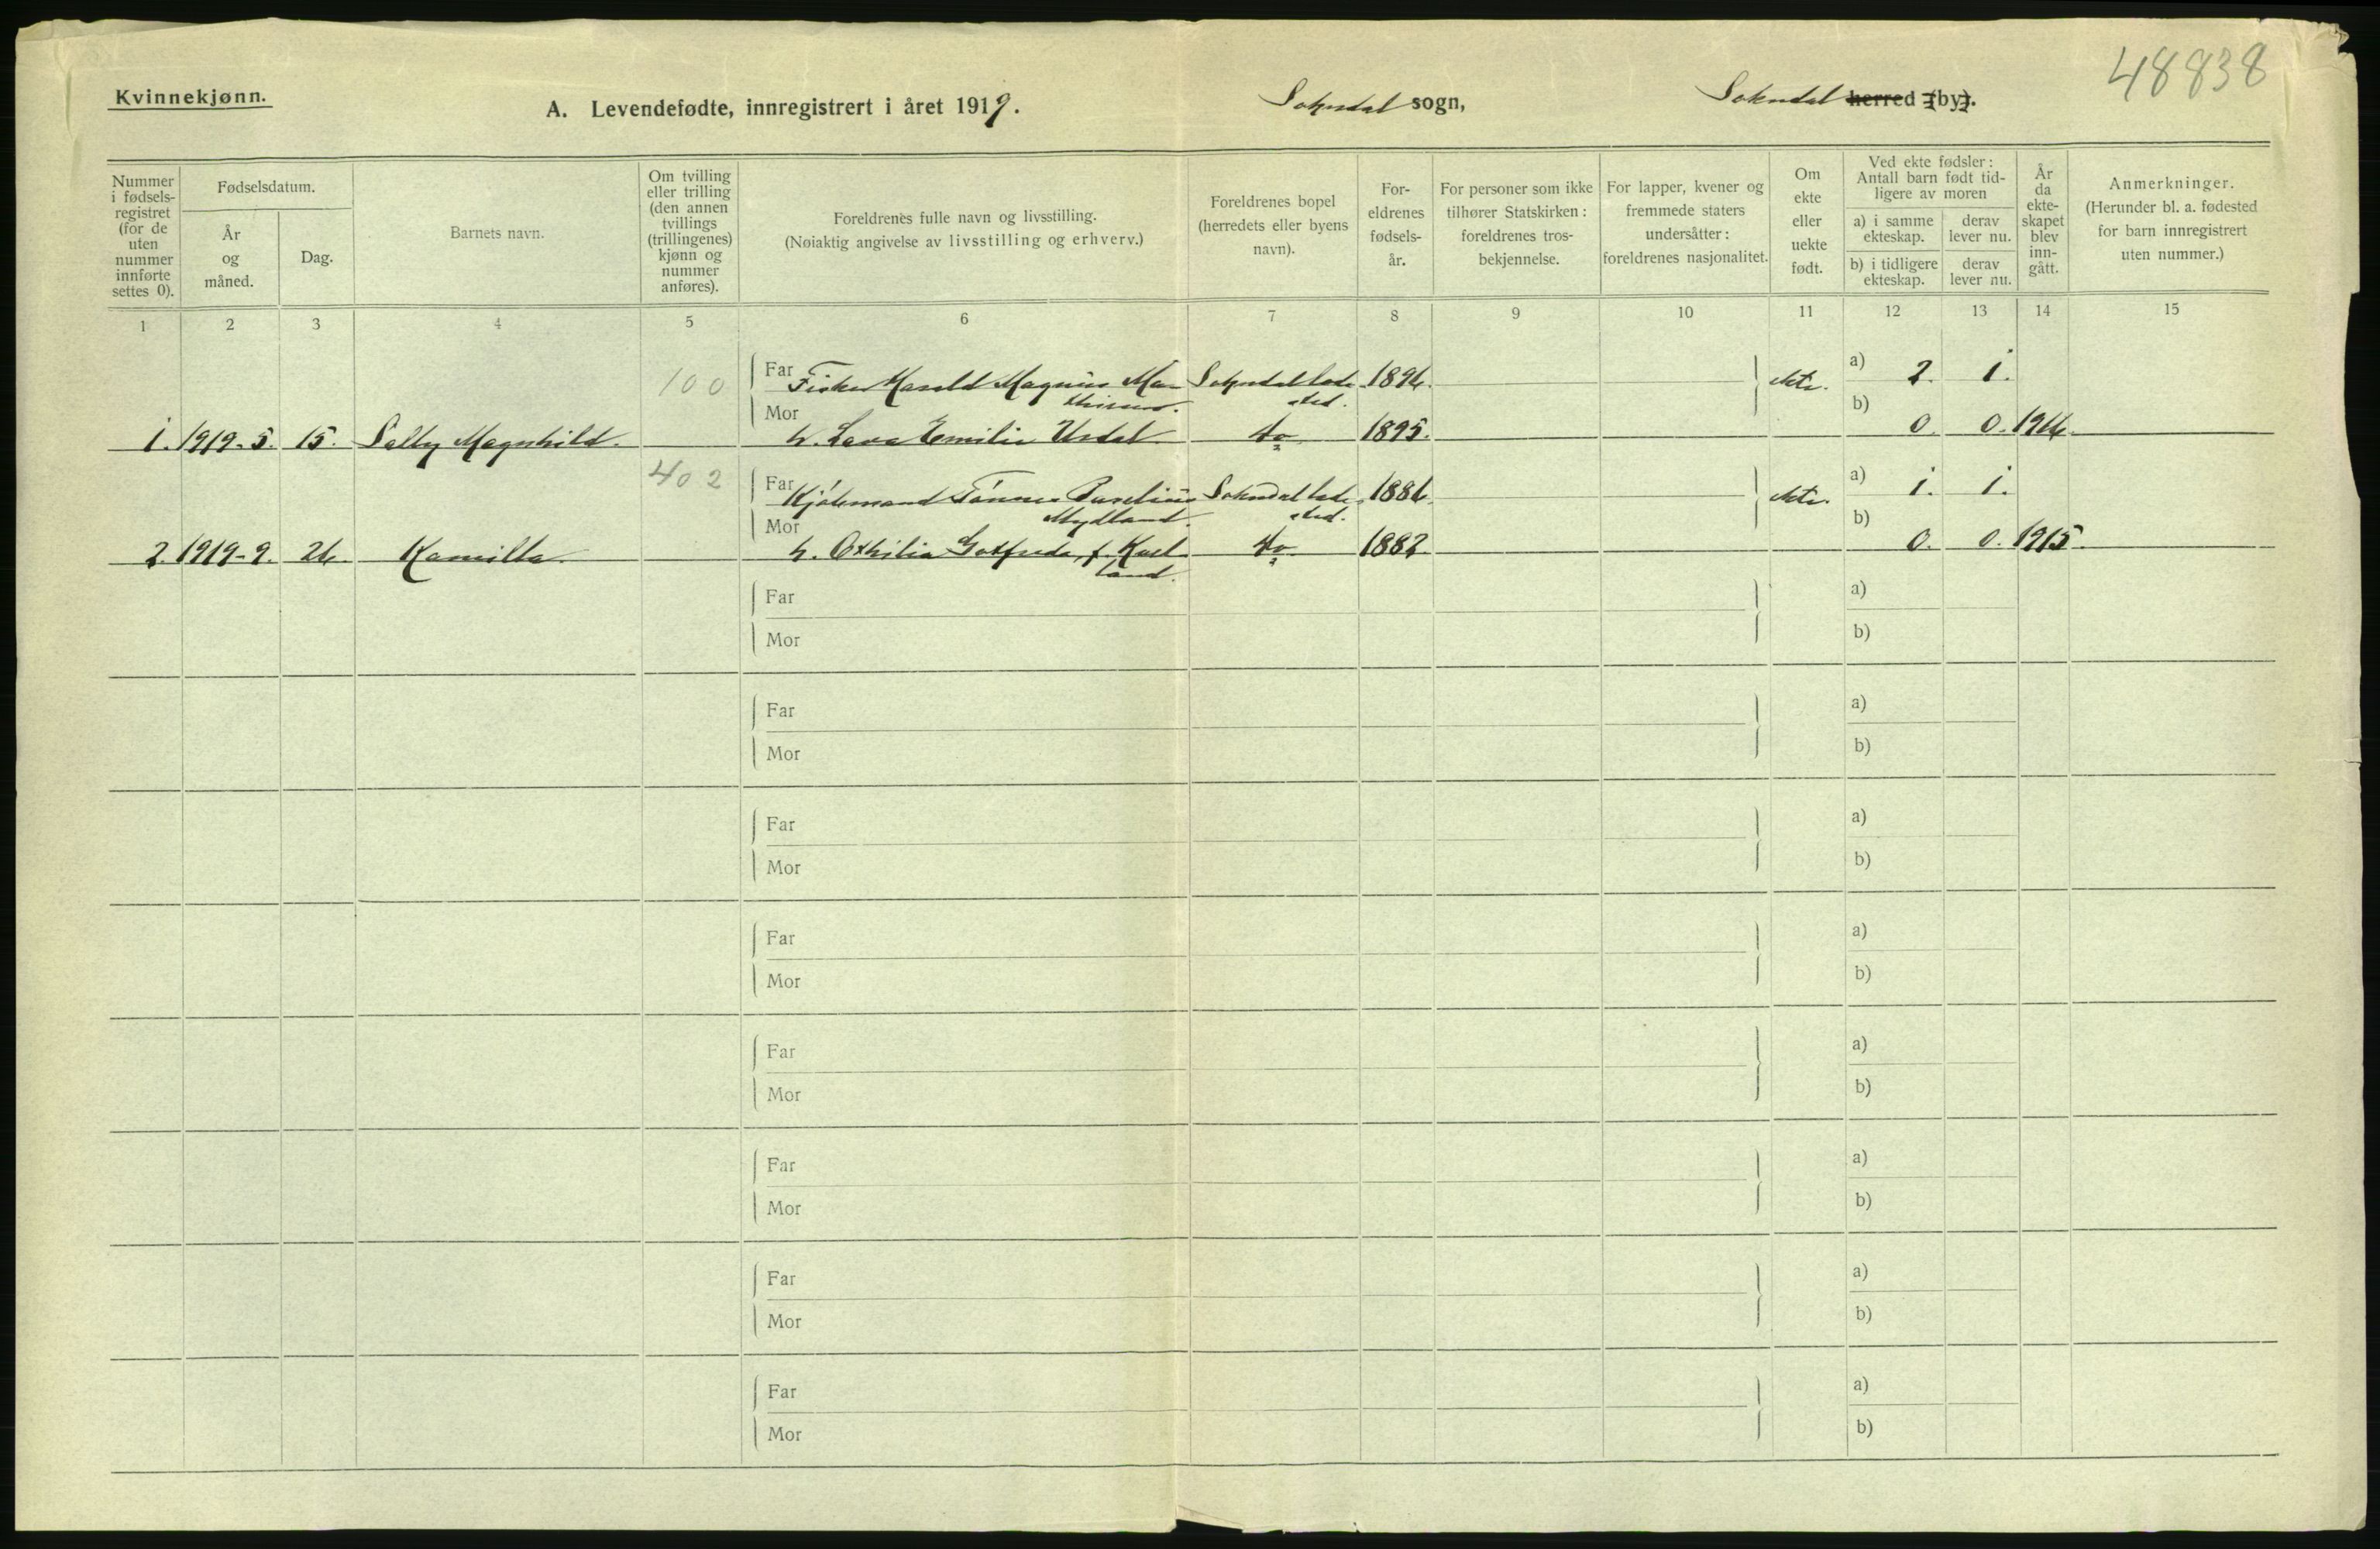 48838
Kvinnekjønn.
A. Levendefødte, innregistrert i året 1919. Sokndal sogn, Sokndal herred (by).
Nummer i fødselsregistret (for de uten nummer innførte settes 0).
Fødselsdatum.
År og måned.
Dag.
Barnets navn.
Om tvilling eller trilling (den annen tvillings (trillingenes) kjønn og nummer anføres).
Foreldrenes fulle navn og livsstilling.
(Nøiaktig angivelse av livsstilling og erhverv.)
Foreldrenes bopel (herredets eller byens navn).
Foreldrenes fødselsår.
For personer som ikke tilhører Statskirken: foreldrenes trosbekjennelse.
For lapper, kvener og fremmede staters undersåtter: foreldrenes nasjonalitet.
Om ekte eller uekte født.
Ved ekte fødsler: Antall barn født tidligere av moren
a) i samme ekteskap.
derav lever nu.
b) i tidligere ekteskap.
derav lever nu.
År da ekteskapet blev inngått.
Anmerkninger.
(Herunder bl. a. fødested for barn innregistrert uten nummer.)
1 2 3 4 5 6 7 8 9 10 11 12 13 14 15
100 Far Fisker Harald Magnus Ma- Sokndal lade 1894. ekte. a) 2. 1.
thisen. sted.
Mor b)
1. 1919-5. 15. Solby Magnhild. h. Lava Emilie Urdal do 1895. 0. 0. 1914.
402 Far Tønnes Sokndal lade 1884. ekte. a) 1. 1.
Mydland. sted.
Mor b)
2. 1919-9. 24. Kamilla. h. Othilia Gotfreda, f. do 1882. 0. 0. 1915.
land.
Far a)
Mor b)
Far a)
Mor b)
Far a)
Mor b)
Far a)
Mor b)
Far a)
Mor b)
Far a)
Mor b)
Far a)
Mor b)
Far a)
Mor b)